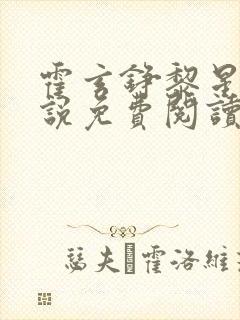 霍玄錚黎星
說免費閱讀
瑟夫 霍洛維